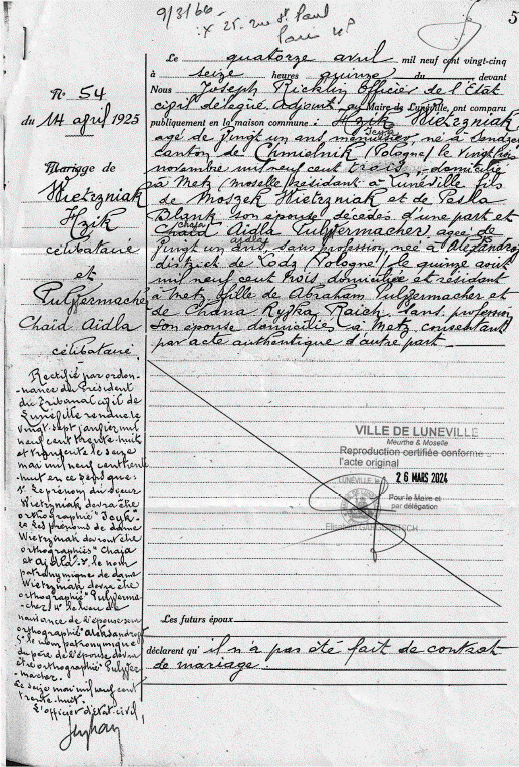 9/3/66
25. rue St Paul
5
Le quatorze avril mil neuf cent vingt-cinq
à seize heures quinze du devant
Nous Joseph Ricklin Officier de l'Etat
civil délégué Adjoint au Maire de Lunéville, ont comparu
publiquement en la maison commune : Hzik Wietrzniak
Icyk
agé de vingt un ans menuisier, né à
canton de Chmielnik (Pologne) le vingt trois
novembre mil neuf cent trois, domicilié
à Metz (Moselle) résidant à Lunéville fils
de Moszek Wietrzniak et de Paska
Blank son épouse décédés d'une part et
chaja
Chaïd Aïdla Pulvermacher, agée de
ajdla
vingt un ans, sans profession, née à
district de Lodz (Pologne) le quinze août
mil neuf cent trois domiciliée et résidant
à Metz fille de Abraham Pulvermacher et
de Chana Ryfka Raich sans profession
son épouse domiciliés à Metz, consentant
par acte authentique d'autre part.
N° 54
du 14 april 1925
Mariage de
Wietrzniak
Hzik
célibataire
et
Pulvermacher
Chaïd Aïdla
célibataire
Rectifié par ordon-
nance du Président
du Tribunal civil de
Lunéville rendue le
vingt sept janvier mil
neuf cent trente huit
et transcrite le seize
mai mil neuf cent trente
huit en ce sens que :
1° Le prénom du sieur
Wietrzniak devra être
orthographié "Icyk"
2° les prénoms de dame
Wietrzniak devront être
orthographiés "Chaja
et Ajdla" 3° le nom
patronymique de dame
Wietrzniak devra être
orthographié
4° le lieu de
naissance de l'épouse sera
orthographié
5° le nom patronymique
du père de l'épouse devra
être orthographié
Le seize mai mil neuf cent
trente huit.
L'officier d'état civil,
VILLE DE LUNEVILLE
Meurthe & Moselle
Reproduction certifiée conforme
l'acte original
LUNEVILLE, le 26 MARS 2024
Pour le Maire et
par délégation
Les futurs époux
déclarent qu'il n'a pas été fait de contrat
de mariage.